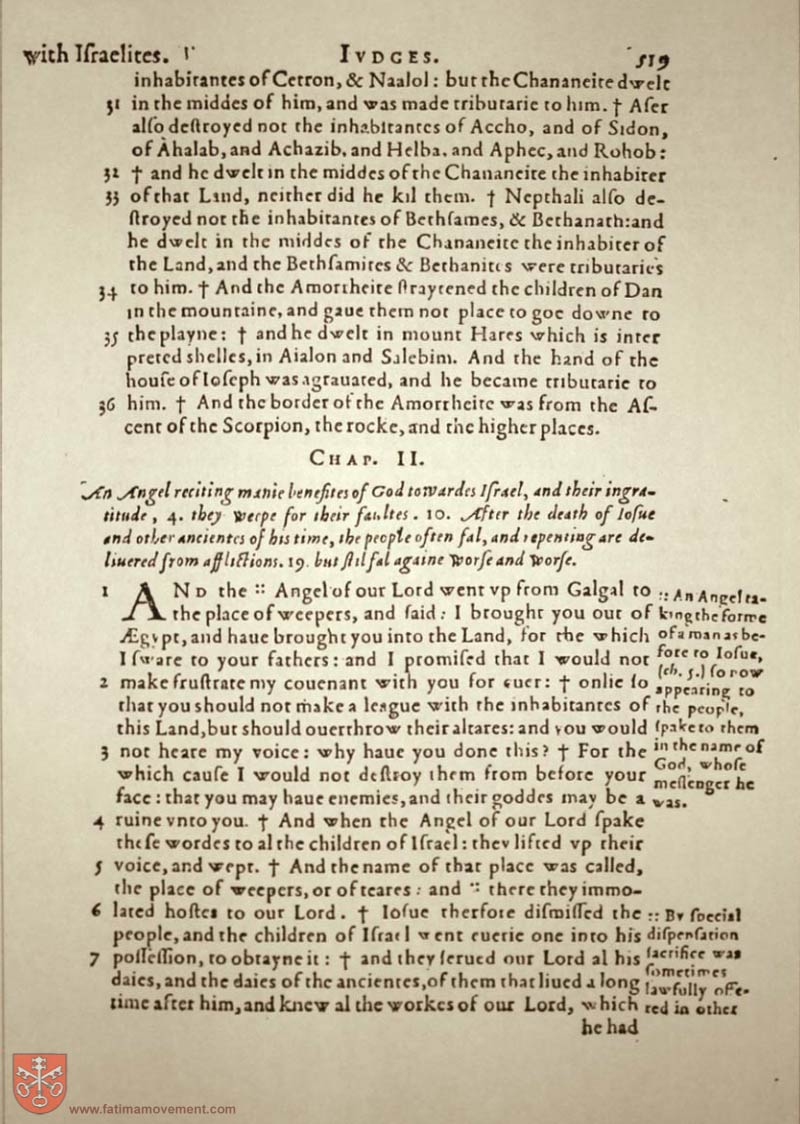 with Iſraelites. V IVDGES. 519
inhabitantes of Cetron, & Naalol: but the Chananeite dwelt
31 in the middes of him, and was made tributarie to him. † Aſer
alſo deſtroyed not the inhabitantes of Accho, and of Sidon,
of Ahalab, and Achazib, and Helba, and Aphec, and Rohob:
32 † and he dwelt in the middes of the Chananeite the inhabiter
33 of that Land, neither did he kil them. † Nepthali alſo de-
ſtroyed not the inhabitantes of Bethſames, & Bethanath: and
he dwelt in the middes of the Chananeite the inhabiter of
the Land, and the Bethſamites & Bethanites were tributaries
34 to him. † And the Amorrheite ſtraytened the children of Dan
in the mountaine, and gaue them not place to goe downe to
35 the playne: † and he dwelt in mount Hares which is inter
preted shelles, in Aialon and Salebim. And the hand of the
houſe of Ioſeph was agrauated, and he became tributarie to
36 him. † And the border of the Amorrheite was from the Aſ-
cent of the Scorpion, the rocke, and the higher places.
CHAP. II.
An Angel reciting manie benefites of God towardes Iſrael, and their ingra-
titude, 4. they weepe for their faultes. 10. After the death of Ioſue
and other ancientes of his time, the people often fal, and repenting are de-
liuered from afflictions. 19. but ſtil fal againe worſe and worſe.
1 AND the :: Angel of our Lord went vp from Galgal to
the place of weepers, and ſaid: I brought you out of
Ægypt, and haue brought you into the Land, for the which
I ſware to your fathers: and I promiſed that I would not
2 make fruſtrate my couenant with you for euer: † onlie ſo
that you should not make a league with the inhabitantes of
this Land, but should ouerthrow their altares: and you would
3 not heare my voice: why haue you done this? † For the
which cauſe I would not deſtroy them from before your
face: that you may haue enemies, and their goddes may be a
4 ruine vnto you. † And when the Angel of our Lord ſpake
theſe wordes to al the children of Iſrael: they lifted vp their
5 voice, and wept. † And the name of that place was called,
the place of weepers, or of teares: and :: there they immo-
6 lated hoſtes to our Lord. † Ioſue therfore diſmiſſed the
people, and the children of Iſrael went euerie one into his
7 poſſeſſion, to obtayne it: † and they ſerued our Lord al his
daies, and the daies of the ancientes, of them that liued a long
time after him, and knew al the workes of our Lord, which
he had
:: An Angel ta-
king the forme
of a man as be-
fore to Ioſue,
(ch. 5.) ſo now
appearing to
the people,
ſpake to them
in the name of
God, whoſe
meſſenger he
was.
:: By ſpecial
diſpenſation
ſacrifice was
ſometimes
lawfully offe-
red in other
www.fatimamovement.com